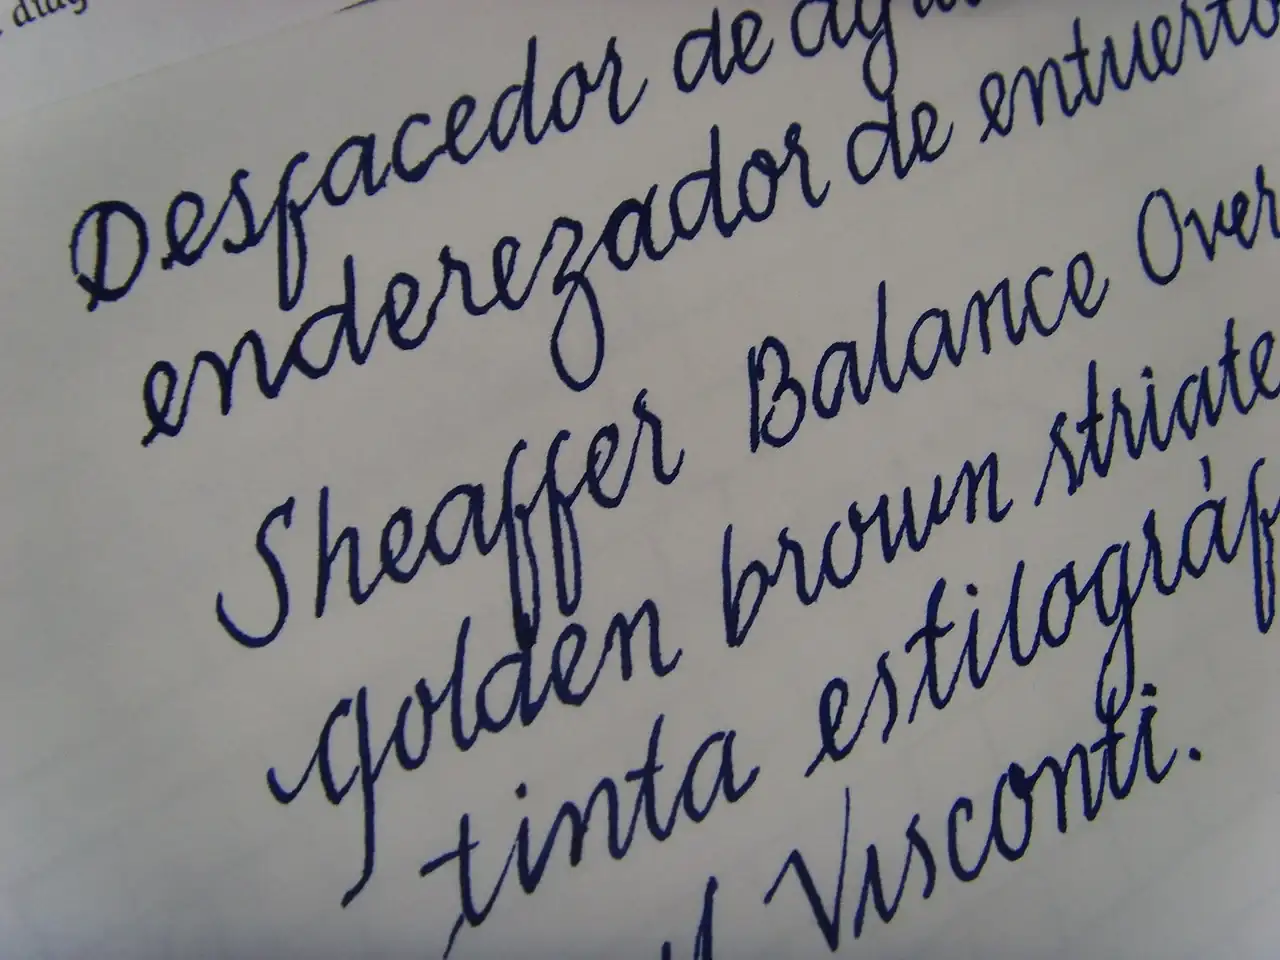 Desfacedor de
enderezador de entuerto
Sheaffer Balance Over
golden brown striate
tinta estilográf
Visconti.